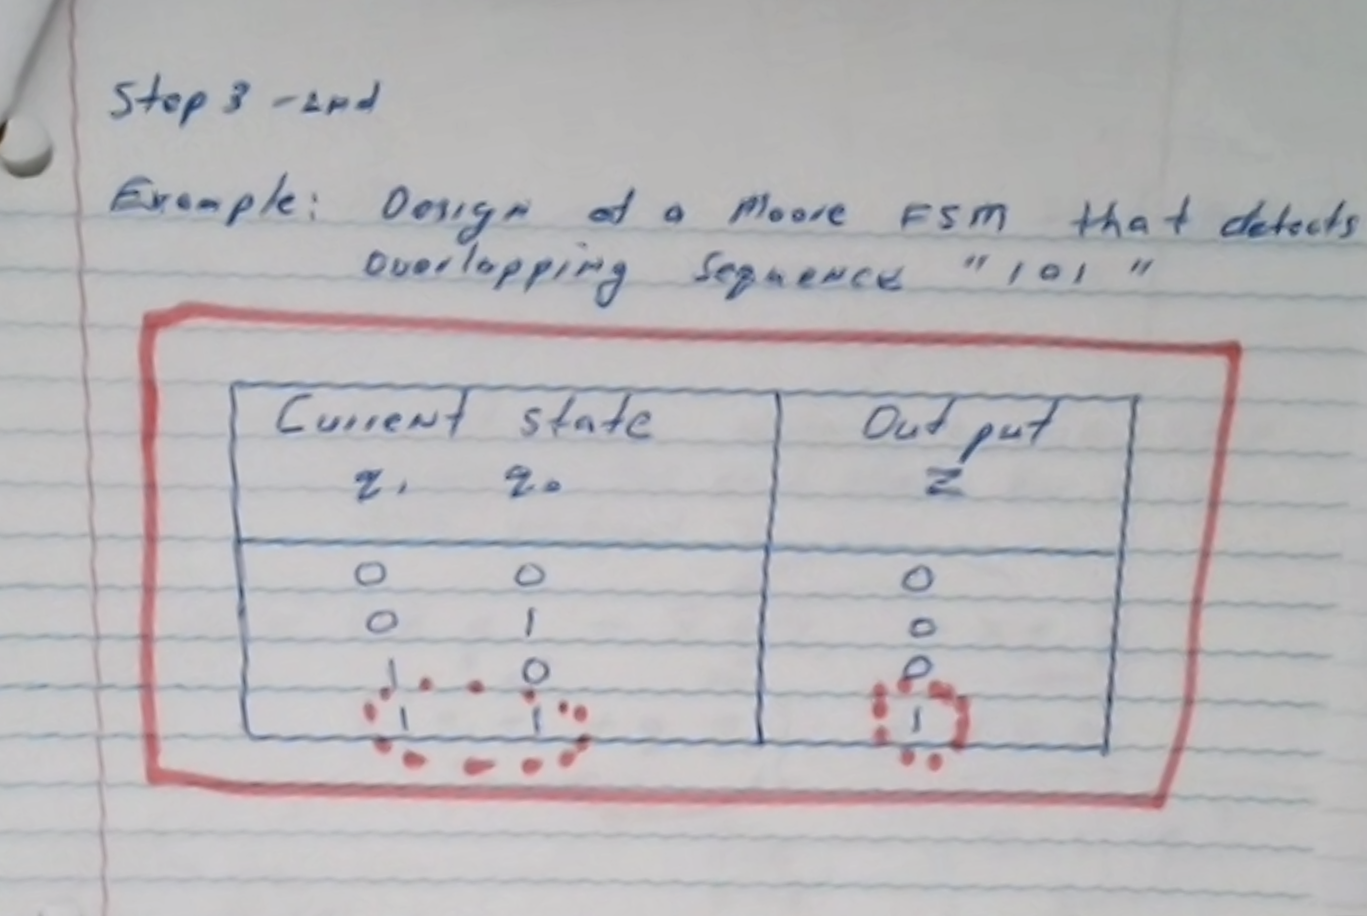 Step 3 - 2nd
Example: Design of a Moore FSM that detects
overlapping Sequence "101"
Current state Output
q1 q0 Z
0 0 0
0 1 0
1 0 0
1 1 1